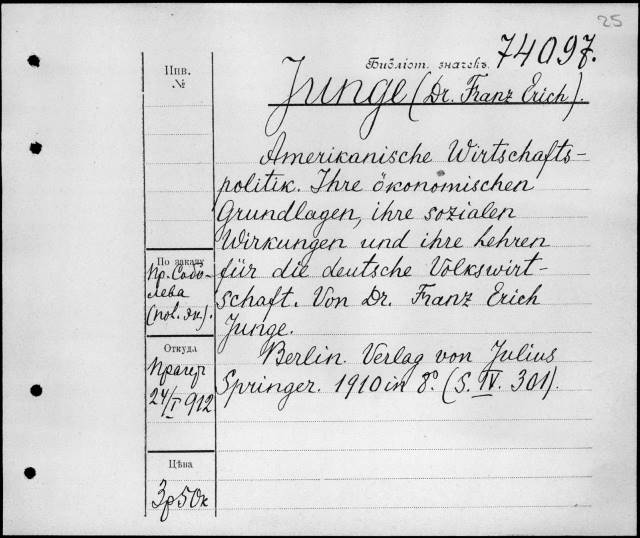 25
Библіот. значекъ 74097.
Инв.
№
Junge (Dr. Franz Erich).
Amerikanische Wirtschafts-
politik. Ihre ökonomischen
Grundlagen, ihre sozialen
Wirkungen und ihre Lehren
für die deutsche Volkswirt-
schaft. Von Dr. Franz Erich
Junge.
Berlin. Verlag von Julius
Springer. 1910 in 8º. (S. IV. 301).
По заказу
Пр. Собо-
лева
(пол. эк.).
Откуда
Прагер
24/I 912
Цѣна
3р50к